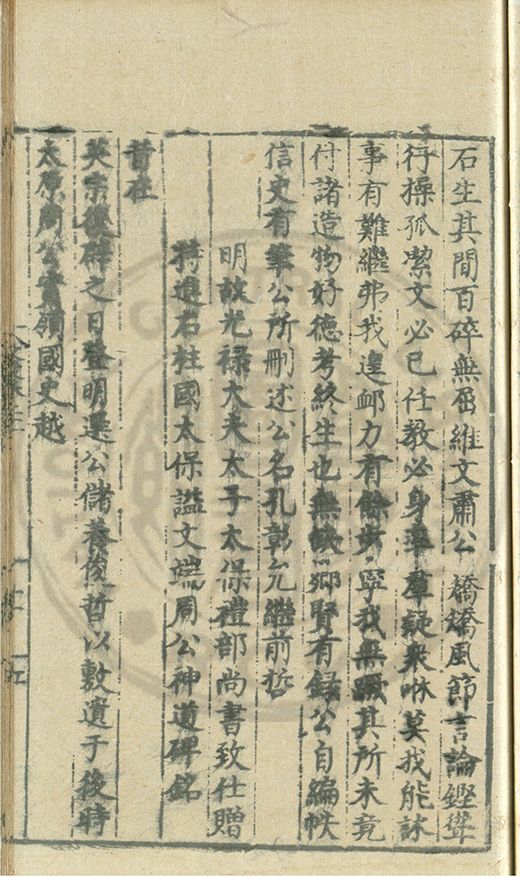 石生其間百碎無窑維文肅公矯矯風節言論鏗聳
行操孤潔文必已任教必身率羣疑衆咻莫我能訹
事有難繼弗我遑邮力有餘步寧我無躐其所未竟
付諸造物好德考終生也無憾鄉賢有録公自編帙
信史有筆公所刪述公名孔彰允繼前哲
明故光禄大夫太子太保禮部尚書致仕贈
特進右柱國太保謚文端周公神道碑銘
昔在
英宗復辟之日登明選公儲養俊哲以敷遺于後時
太原周公實領國史越